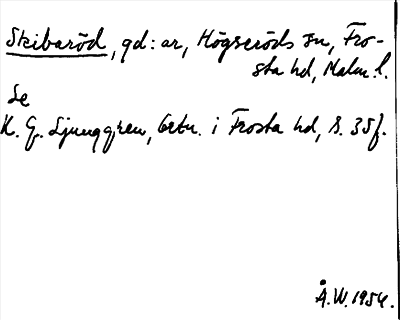 Skibaröd, gd:ar, Högseröds sn, Fro-
sta hd, Malm. l.
Se
K. G. Ljunggren, bebn. i Frosta hd, s. 35f.
Å.W. 1954.